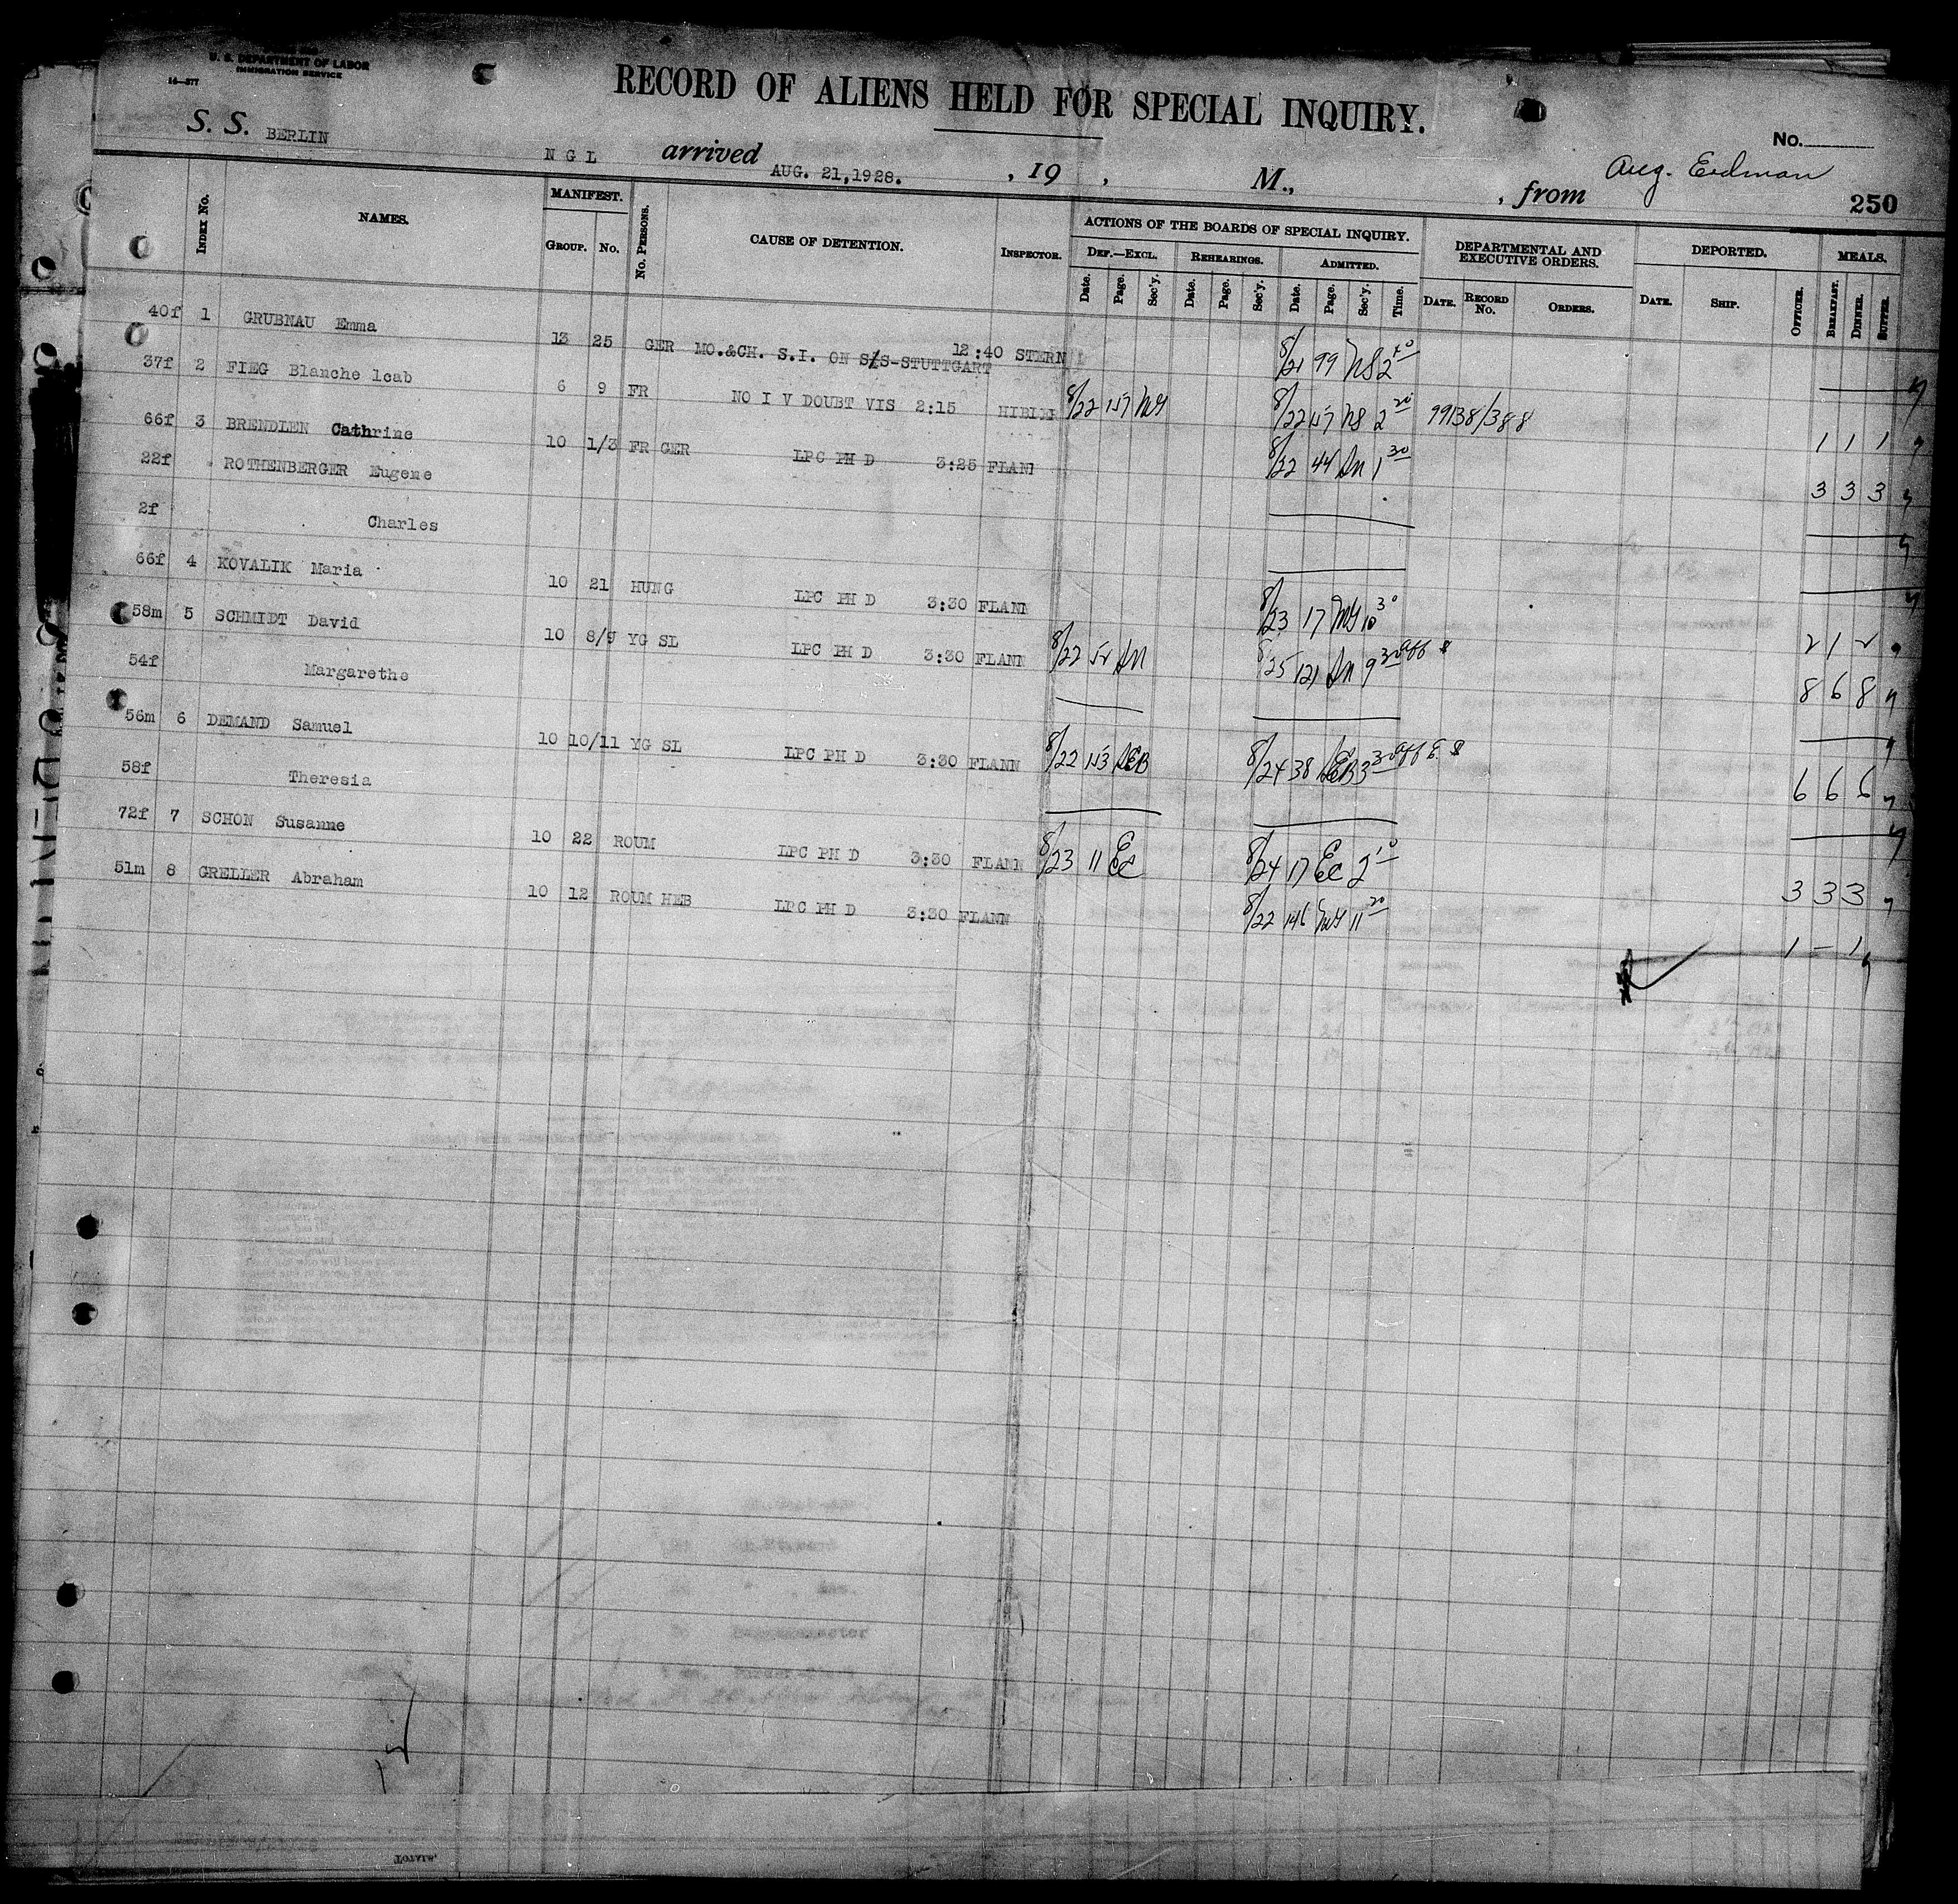 U. S. DEPARTMENT OF LABOR
IMMIGRATION SERVICE
14—377
RECORD OF ALIENS HELD FOR SPECIAL INQUIRY.
No.
S. S. BERLIN N G L arrived AUG. 21,1928. , 19 , M., , from Aug. Erdman
250
INDEX No. NAMES. MANIFEST. GROUP. No. No. PERSONS. CAUSE OF DETENTION. INSPECTOR. ACTIONS OF THE BOARDS OF SPECIAL INQUIRY. DEPARTMENTAL AND EXECUTIVE ORDERS. DEPORTED. MEALS.
DEF.—EXCL. REHEARINGS. ADMITTED.
Date. Page. Sec'y. Date. Page. Sec'y. Date. Page. Sec'y. Time. DATE. RECORD No. ORDERS. DATE. SHIP. OFFICER. BREAKFAST. DINNER. SUPPER.
40f 1 GRUBNAU Emma 13 25 GER MO.&CH. S.I. ON S/S-STUTTGART 12:40 STERN 8/21 99 NS 2 40
37f 2 FIEG Blanche lcab 6 9 FR NO I V DOUBT VIS 2:15 HIBLER 8/22 157 8/22 157 NS 2 20 99138/388 1 1 1
66f 3 BRENDLEN Cathrine 10 1/3 FR GER LPC PH D 3:25 FLANN 8/22 44 1 30 3 3 3
22f ROTHENBERGER Eugene
2f Charles
66f 4 KOVALIK Maria 10 21 HUNG LPC PH D 3:30 FLANN 8/23 17 10 30 2 1 2
58m 5 SCHMIDT David 10 8/9 YG SL LPC PH D 3:30 FLANN 8/22 52 8/25 121 9 30 8 6 8
54f Margarethe
56m 6 DEMAND Samuel 10 10/11 YG SL LPC PH D 3:30 FLANN 8/22 153 AEB 8/24 38 AEB 3 30 6 6 6
58f Theresia
72f 7 SCHON Susanne 10 22 ROUM LPC PH D 3:30 FLANN 8/23 11 EC 8/24 17 EC 2 10 3 3 3
51m 8 GRELLER Abraham 10 12 ROUM HEB LPC PH D 3:30 FLANN 8/22 146 11 20 1 — 1